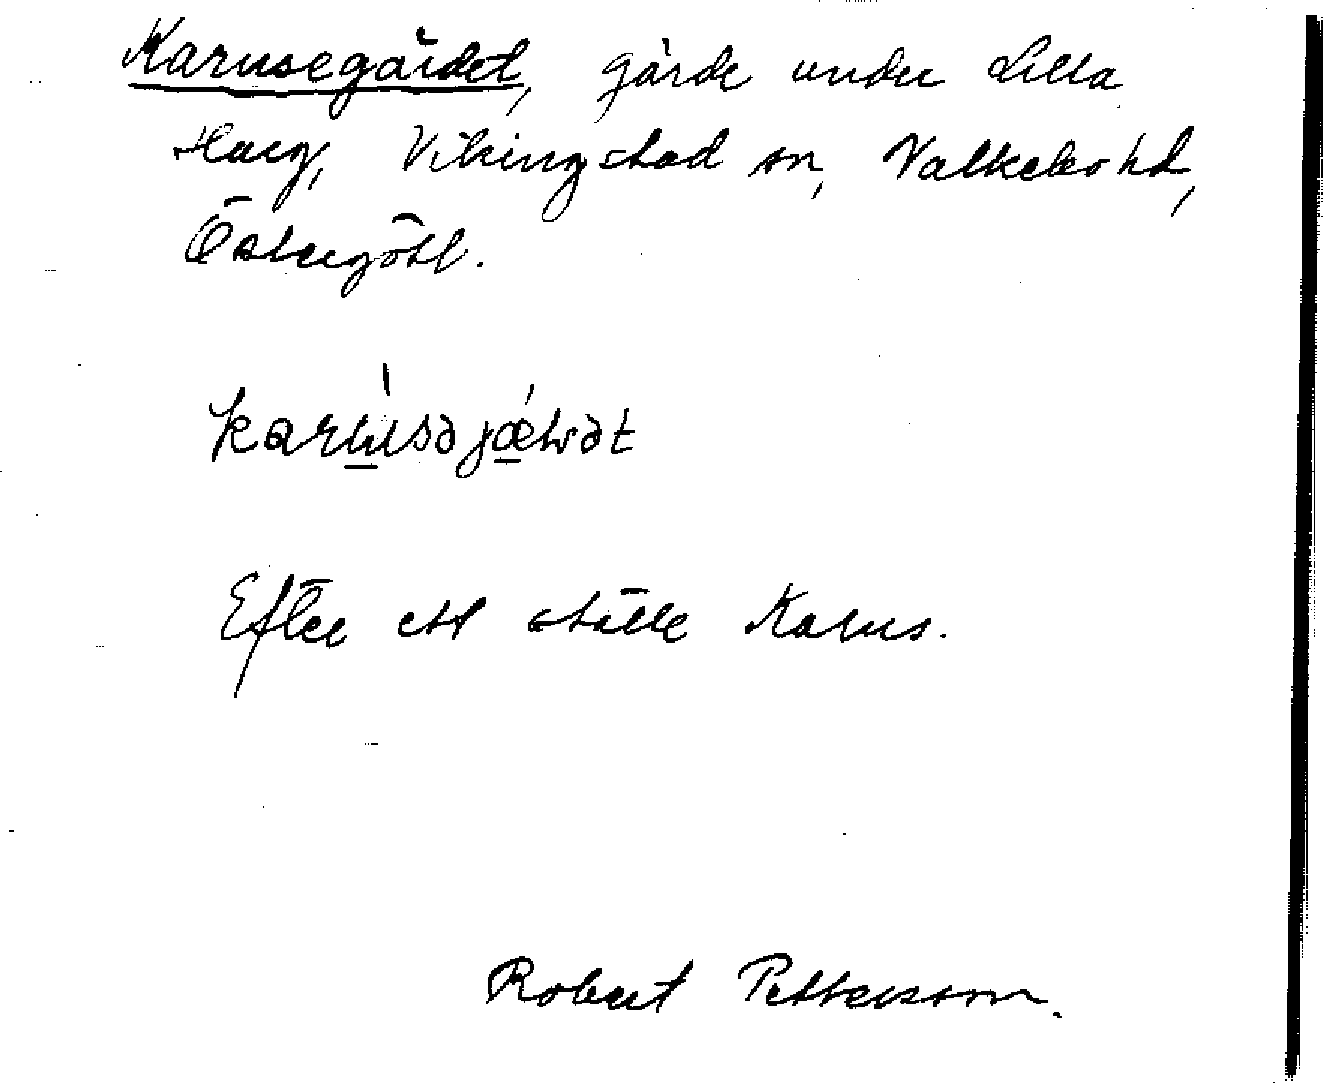 Karusegärdet, gärde under Lilla
Harg, Vikingstad sn, Valkebo hd,
Östergötl.
Efter ett ställe Karus.
Robert Pettersson.